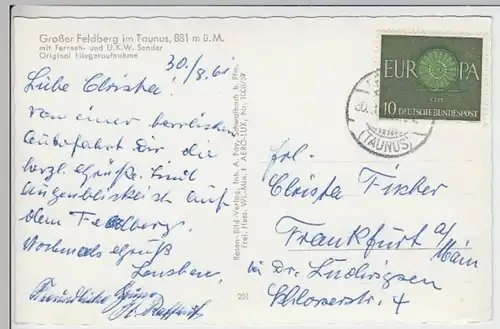 Großer Feldberg im Taunus, 881 m ü. M.
mit Fernseh- und U.K.W. Sender
Original Fliegeraufnahme
30./8.61
Liebe Christa!
Von einer herrlichen
Autofahrt Dir die
herzl. Grüße. Sind
augenblicklich auf
dem Feldberg.
Nochmals Gruß
Freundliche Grüße
Rosen-Bild-Verlag, Inh. A. Foy, Schwalbach b. Ffm.
Frei. Hess. Wi.-Min. AERO-LUX, Nr. 1008/59
201
EUROPA
CEPT
10 DEUTSCHE BUNDESPOST
(TAUNUS)
Frl.
Christa Fischer
Frankfurt a/
Main
bei Dr. Ludwigsen
Schlosserstr. 4